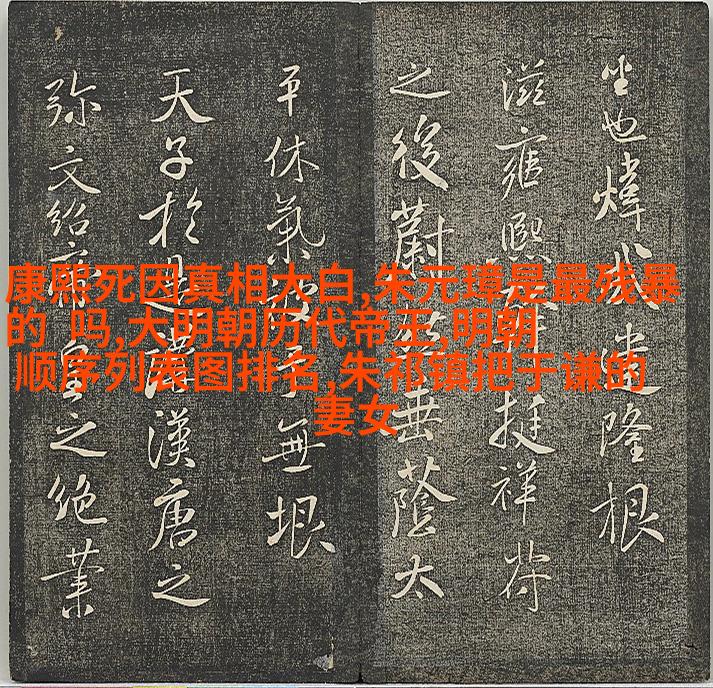 康熙死因真相大白,朱元璋是最残暴
的 吗,大明朝历代帝王,明朝
顺序列表图排名,朱祁镇把于谦的
妻女
也煒隆根
滋雍熙挺祥符
之後蔚垂蔭太
平休氣無垠
天子於漢唐之
弥文紹皇之絶業